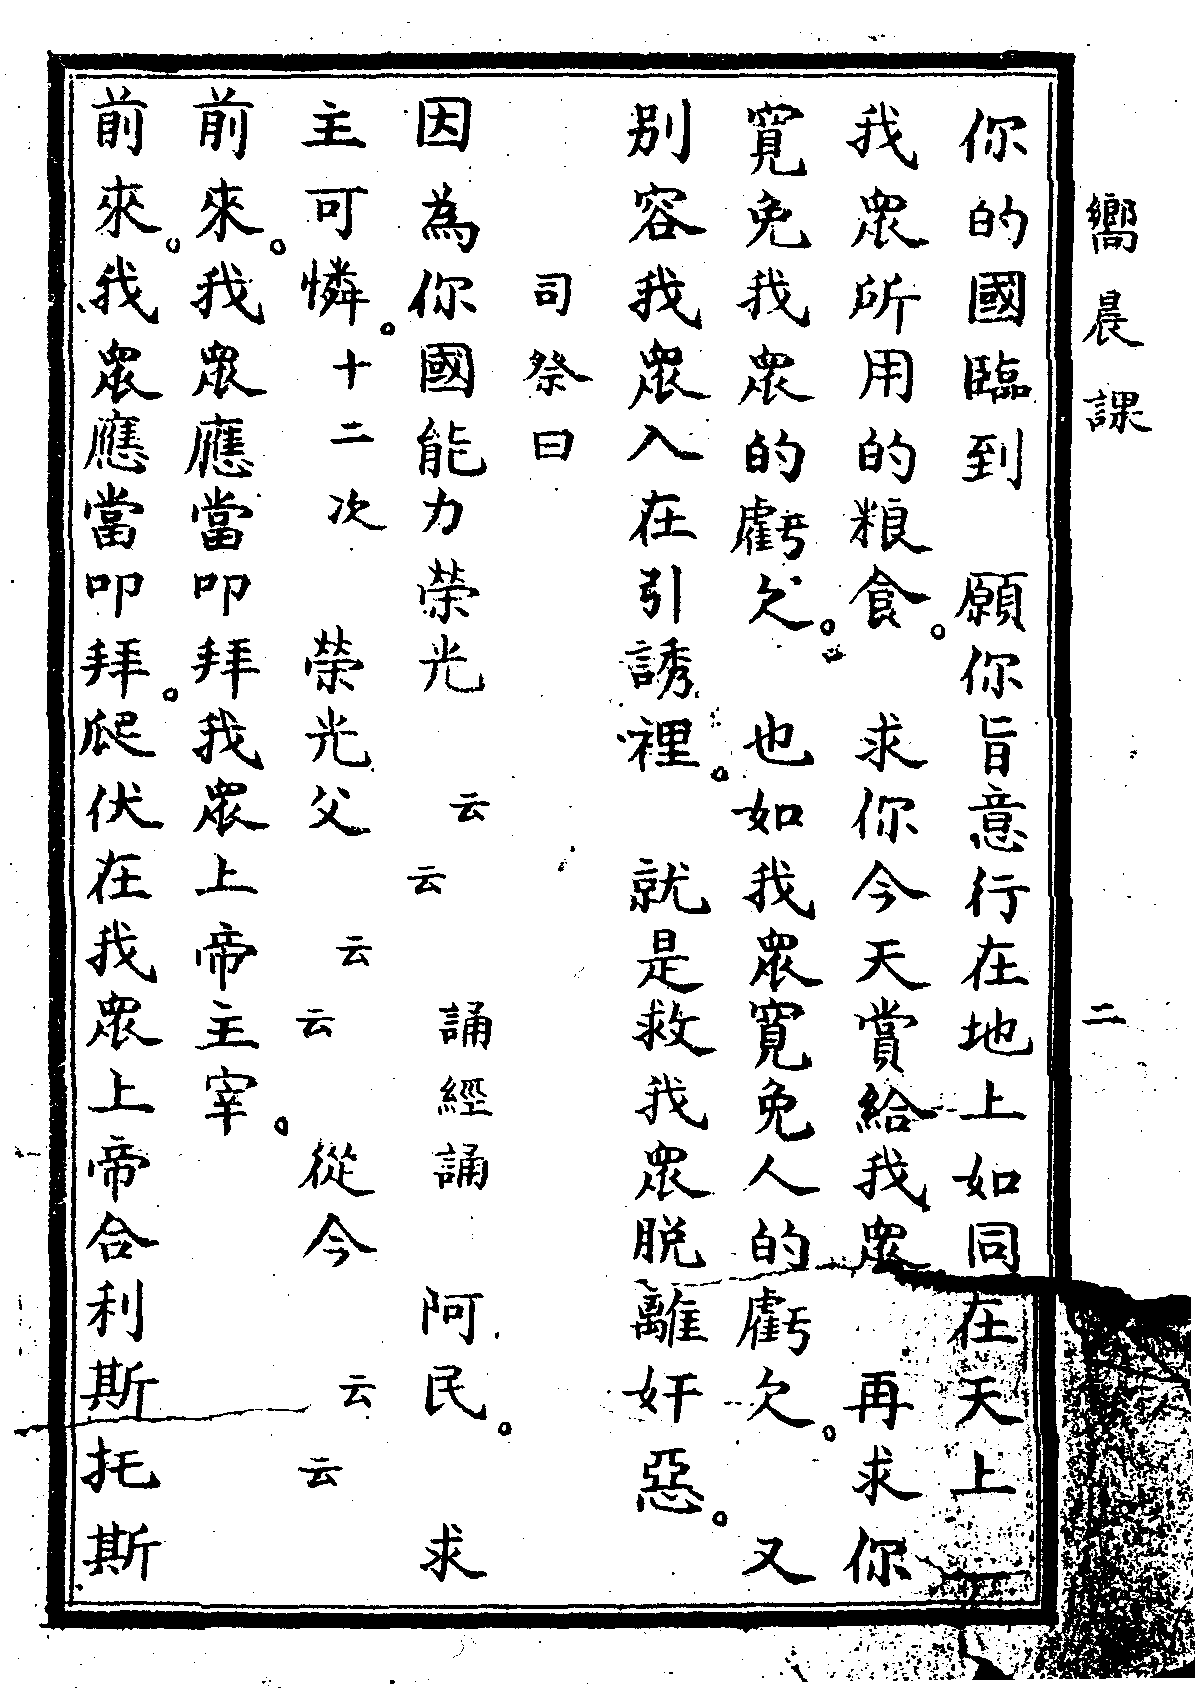 嚮晨課 二
你的國臨到 願你旨意行在地上如同在天上
我眾所用的粮食。 求你今天賞給我眾 再求你
寬免我眾的虧欠。 也如我眾寬免人的虧欠。 又
別容我眾入在引誘裡。 就是救我眾脫離奸惡。
司祭曰
因為你國能力榮光 云云 誦經誦 阿民。 求
主可憐。十二次 榮光父 云云 從今 云云
前來。我眾應當叩拜我眾上帝主宰。
前來。我眾應當叩拜。爬伏在我眾上帝合利斯托斯